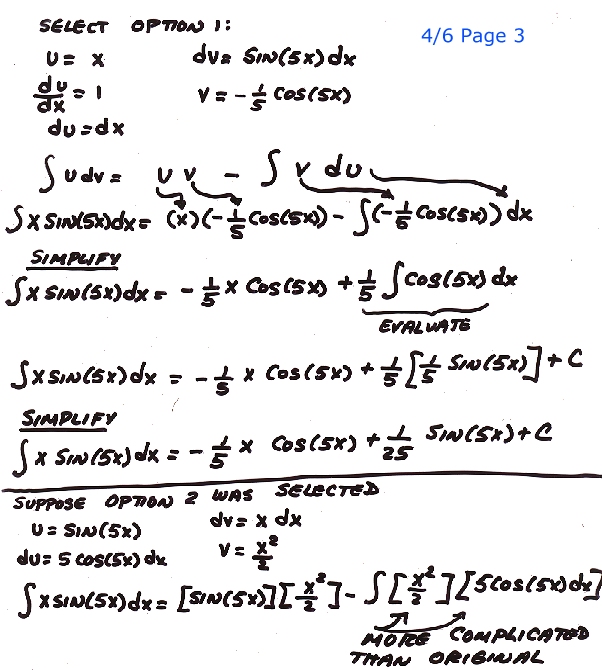 SELECT OPTION 1:
4/6 Page 3
u = x    dv = sin(5x)dx
du/dx = 1    v = -1/5 cos(5x)
du = dx
∫ u dv = u v - ∫ v du
∫ x sin(5x)dx = (x)(-1/5 cos(5x)) - ∫(-1/5 cos(5x)) dx
SIMPLIFY
∫ x sin(5x)dx = -1/5 x cos(5x) + 1/5 ∫ cos(5x) dx
EVALUATE
∫ x sin(5x)dx = -1/5 x cos(5x) + 1/5 [1/5 sin(5x)] + C
SIMPLIFY
∫ x sin(5x)dx = -1/5 x cos(5x) + 1/25 sin(5x) + C
SUPPOSE OPTION 2 WAS SELECTED
u = sin(5x)    dv = x dx
du = 5 cos(5x) dx    v = x²/2
∫ x sin(5x)dx = [sin(5x)][x²/2] - ∫ [x²/2][5cos(5x)dx]
MORE COMPLICATED
THAN ORIGINAL